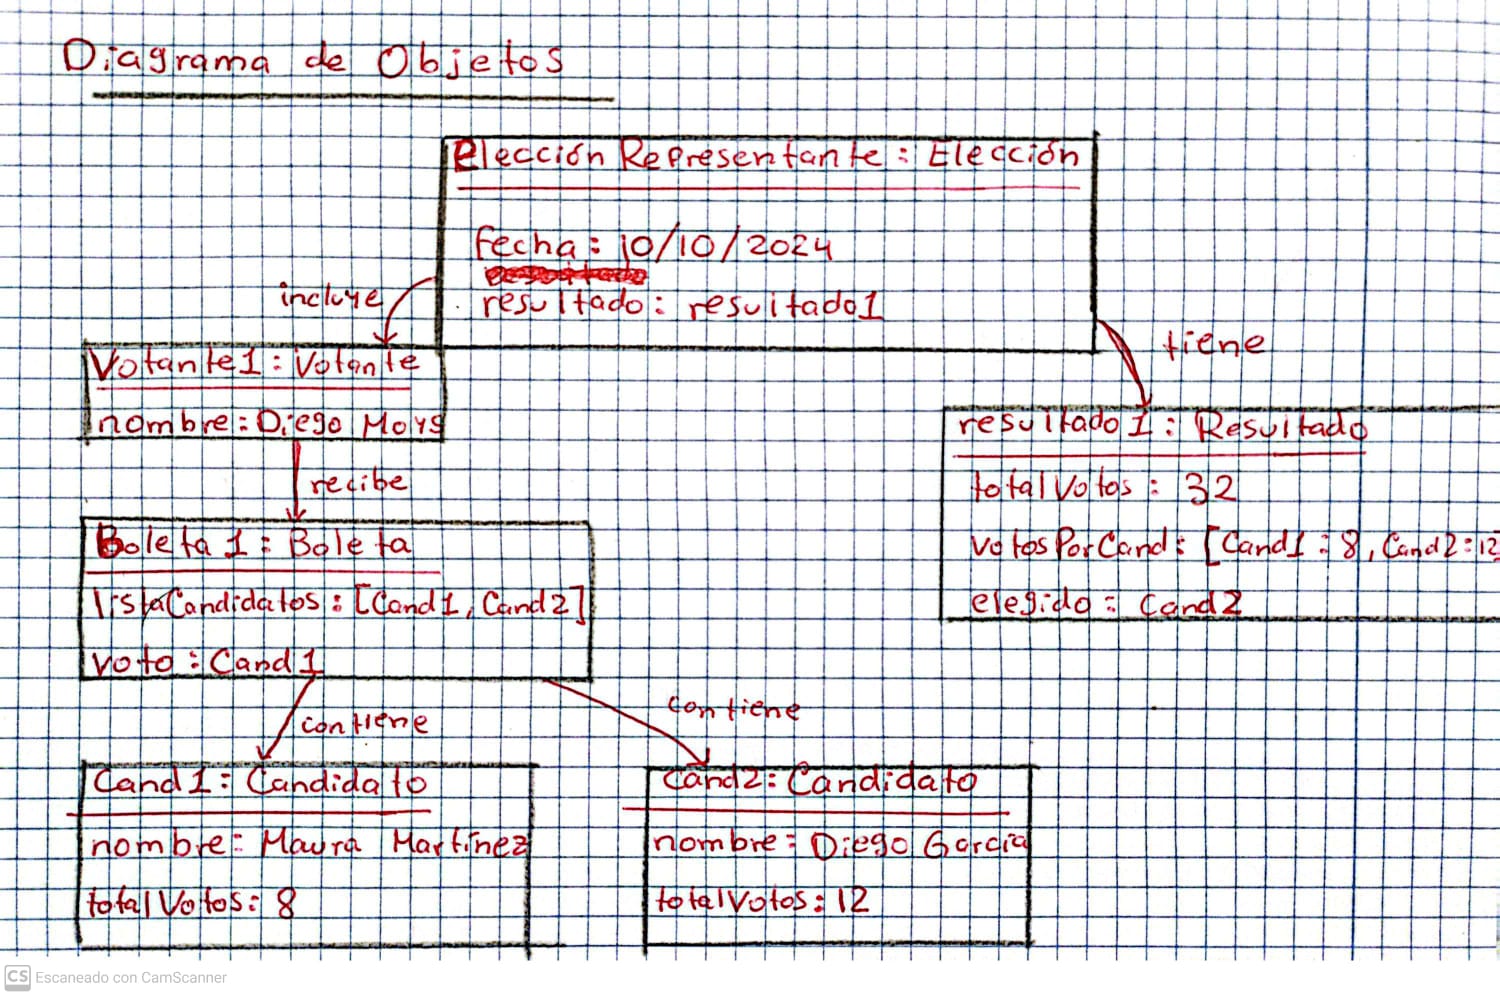 Diagrama de Objetos
Elección Representante : Elección
fecha : 10/10/2024
resultado : resultado1
incluye
tiene
Votante1 : Votante
nombre : Diego Moys
resultado1 : Resultado
totalVotos : 32
votosPorCand : [Cand1 : 8, Cand2 : 12]
elegido : Cand2
recibe
Boleta1 : Boleta
listaCandidatos : [Cand1, Cand2]
voto : Cand1
contiene
contiene
Cand1 : Candidato
nombre : Maura Martínez
totalVotos : 8
Cand2 : Candidato
nombre : Diego García
totalVotos : 12
CS Escaneado con CamScanner